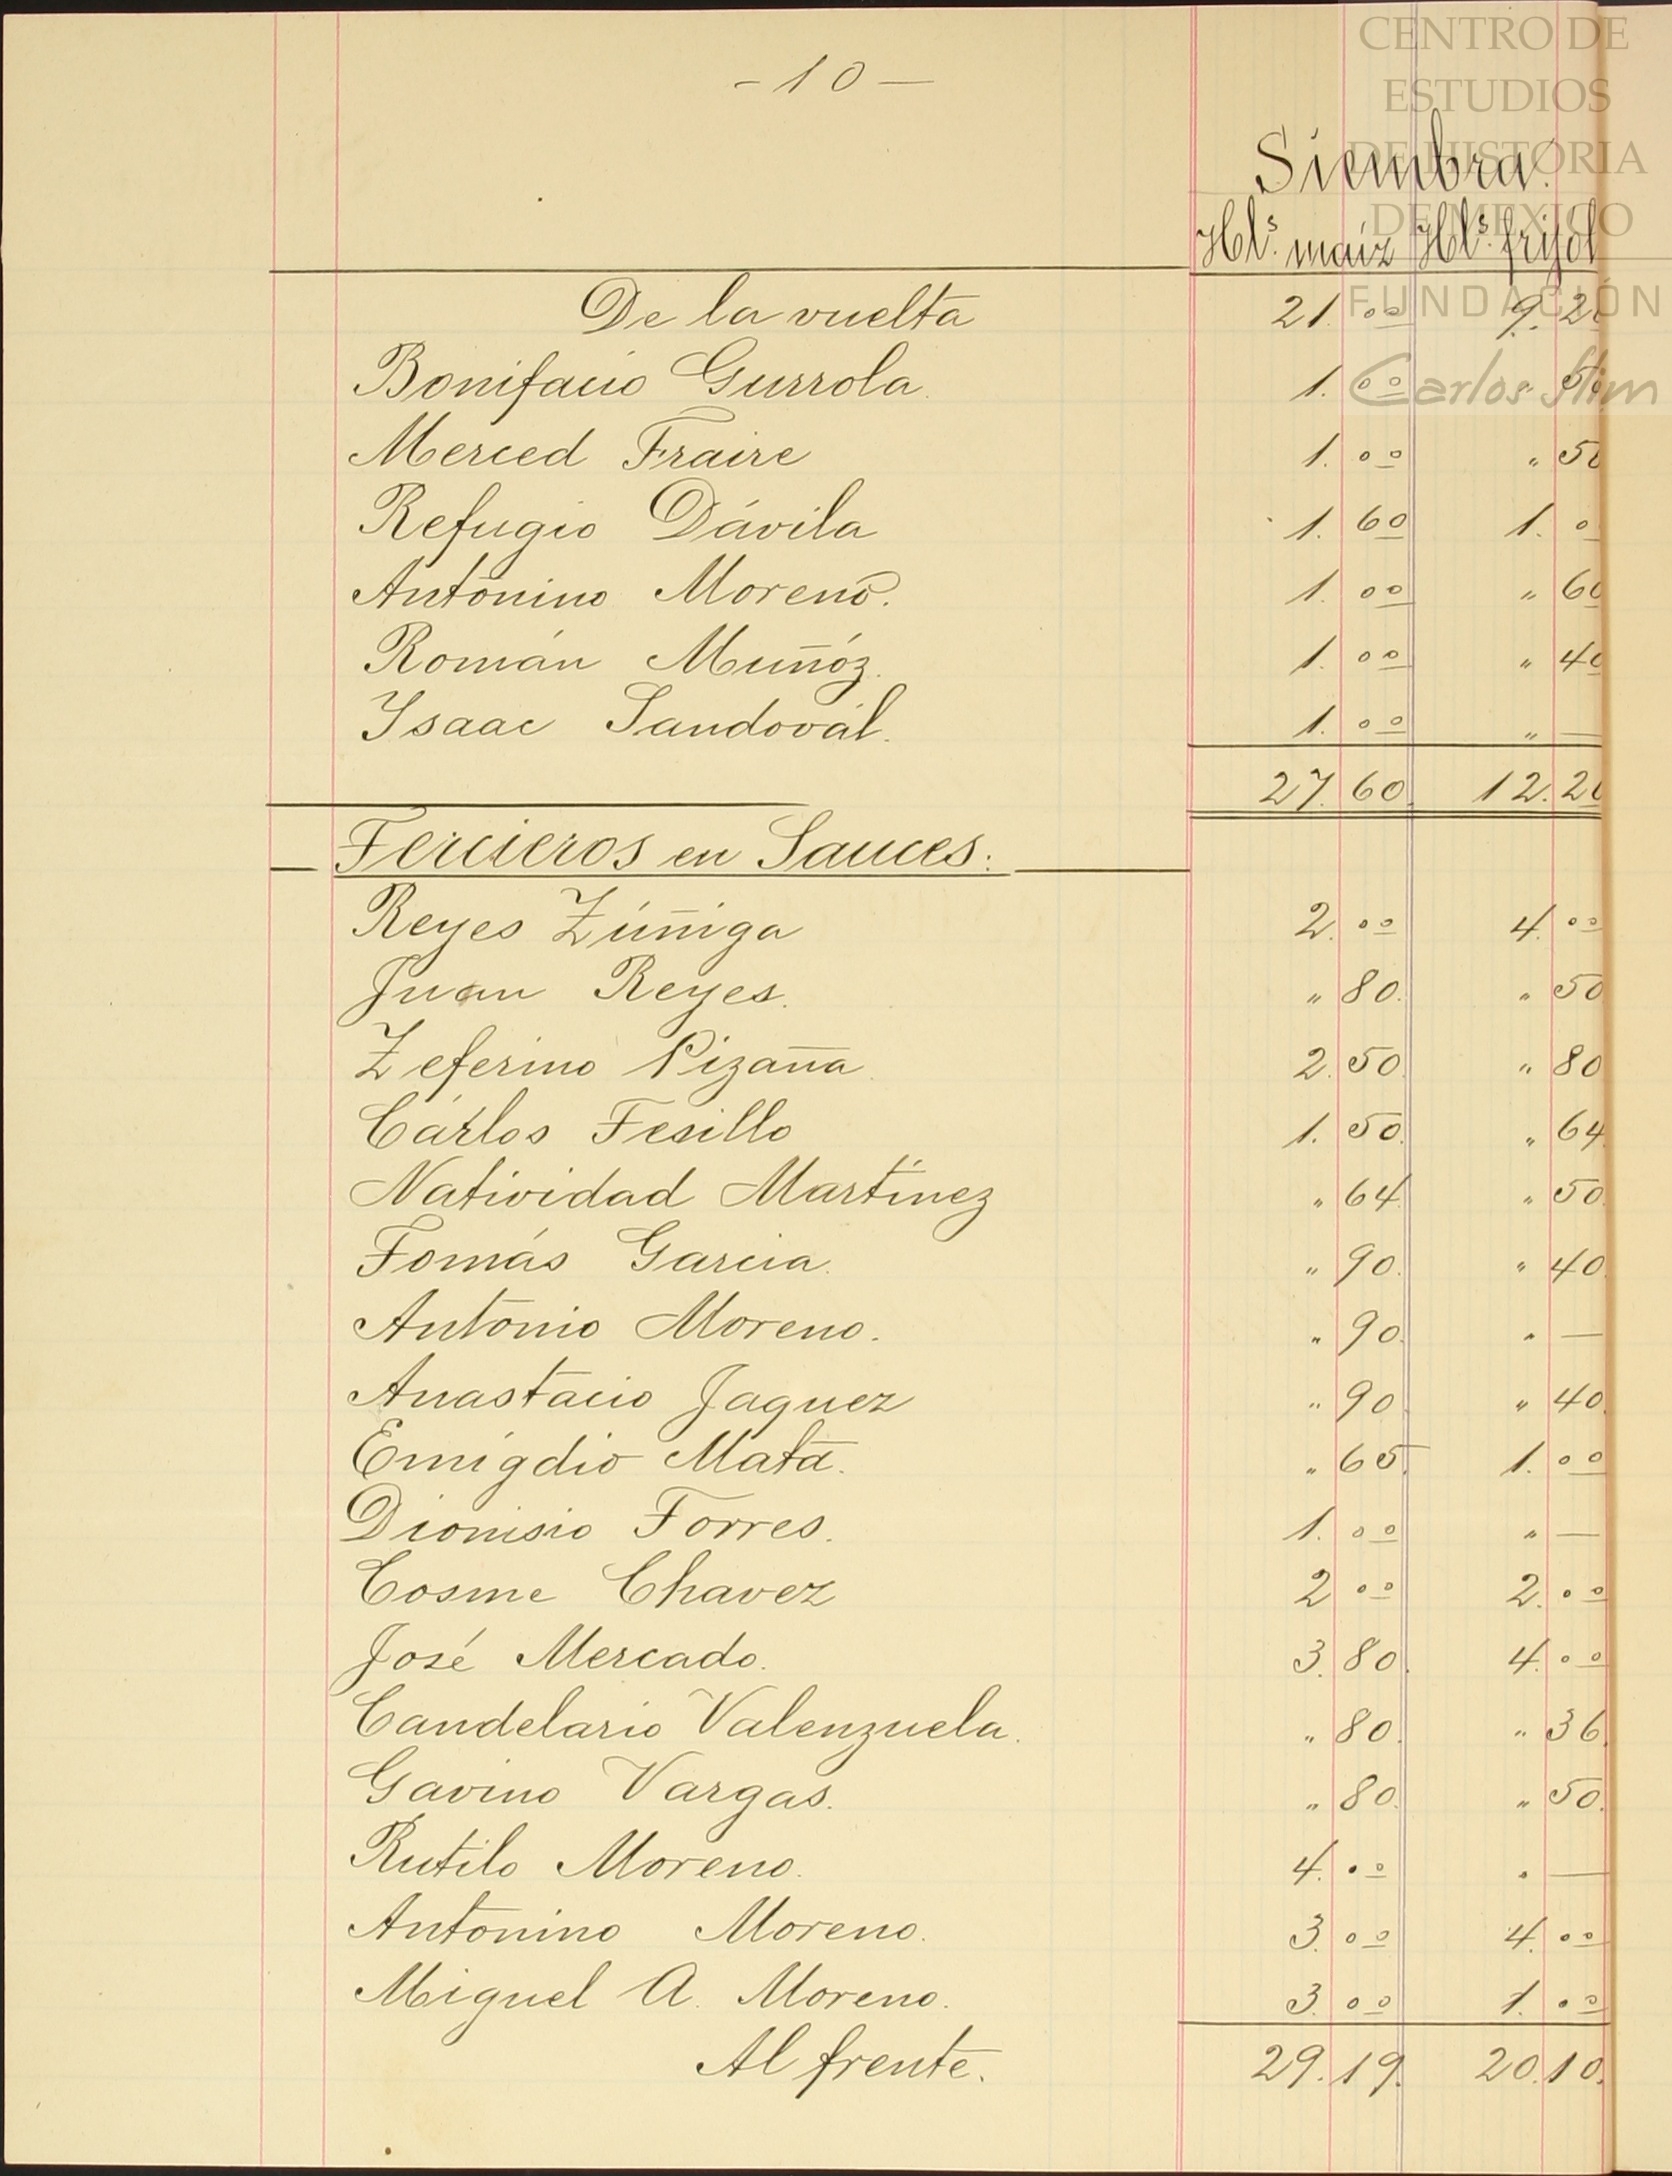 - 10 -
Siembra.
Hls. maíz Hls. frijol
De la vuelta 21. 00 9. 20
Bonifacio Gurrola. 1. 00 " 50
Merced Fraire 1. 00 " 50
Refugio Dávila 1. 60 1. 0
Antonino Moreno. 1. 00 " 60
Román Muñóz. 1. 00 " 40
Ysaac Sandovál. 1. 00 " —
27. 60. 12. 20
Tercieros en Sauces:
Reyes Zúñiga 2. 00 4. 00
Juan Reyes. " 80. " 50
Zeferino Pizaña. 2. 50. " 80
Cárlos Tesillo 1. 50. " 64.
Natividad Martínez " 64. " 50.
Tomás Garcia. " 90. " 40.
Antonio Moreno. " 90. " —
Anastacio Jaquez " 90. " 40.
Emígdio Mata. " 65. 1. 00
Dionisio Torres. 1. 00 " —
Cosme Chavez 2 00 2. 00
José Mercado. 3. 80. 4. 00
Candelario Valenzuela. " 80. " 36.
Gavino Vargas. " 80. " 50.
Rutilo Moreno. 4. 00 " —
Antonino Moreno. 3. 00 4. 00
Miguel A. Moreno. 3. 00 1. 00
Al frente. 29. 19. 20. 10.
CENTRO DE
ESTUDIOS
DE HISTORIA
DE MEXICO
FUNDACIÓN
Carlos Slim